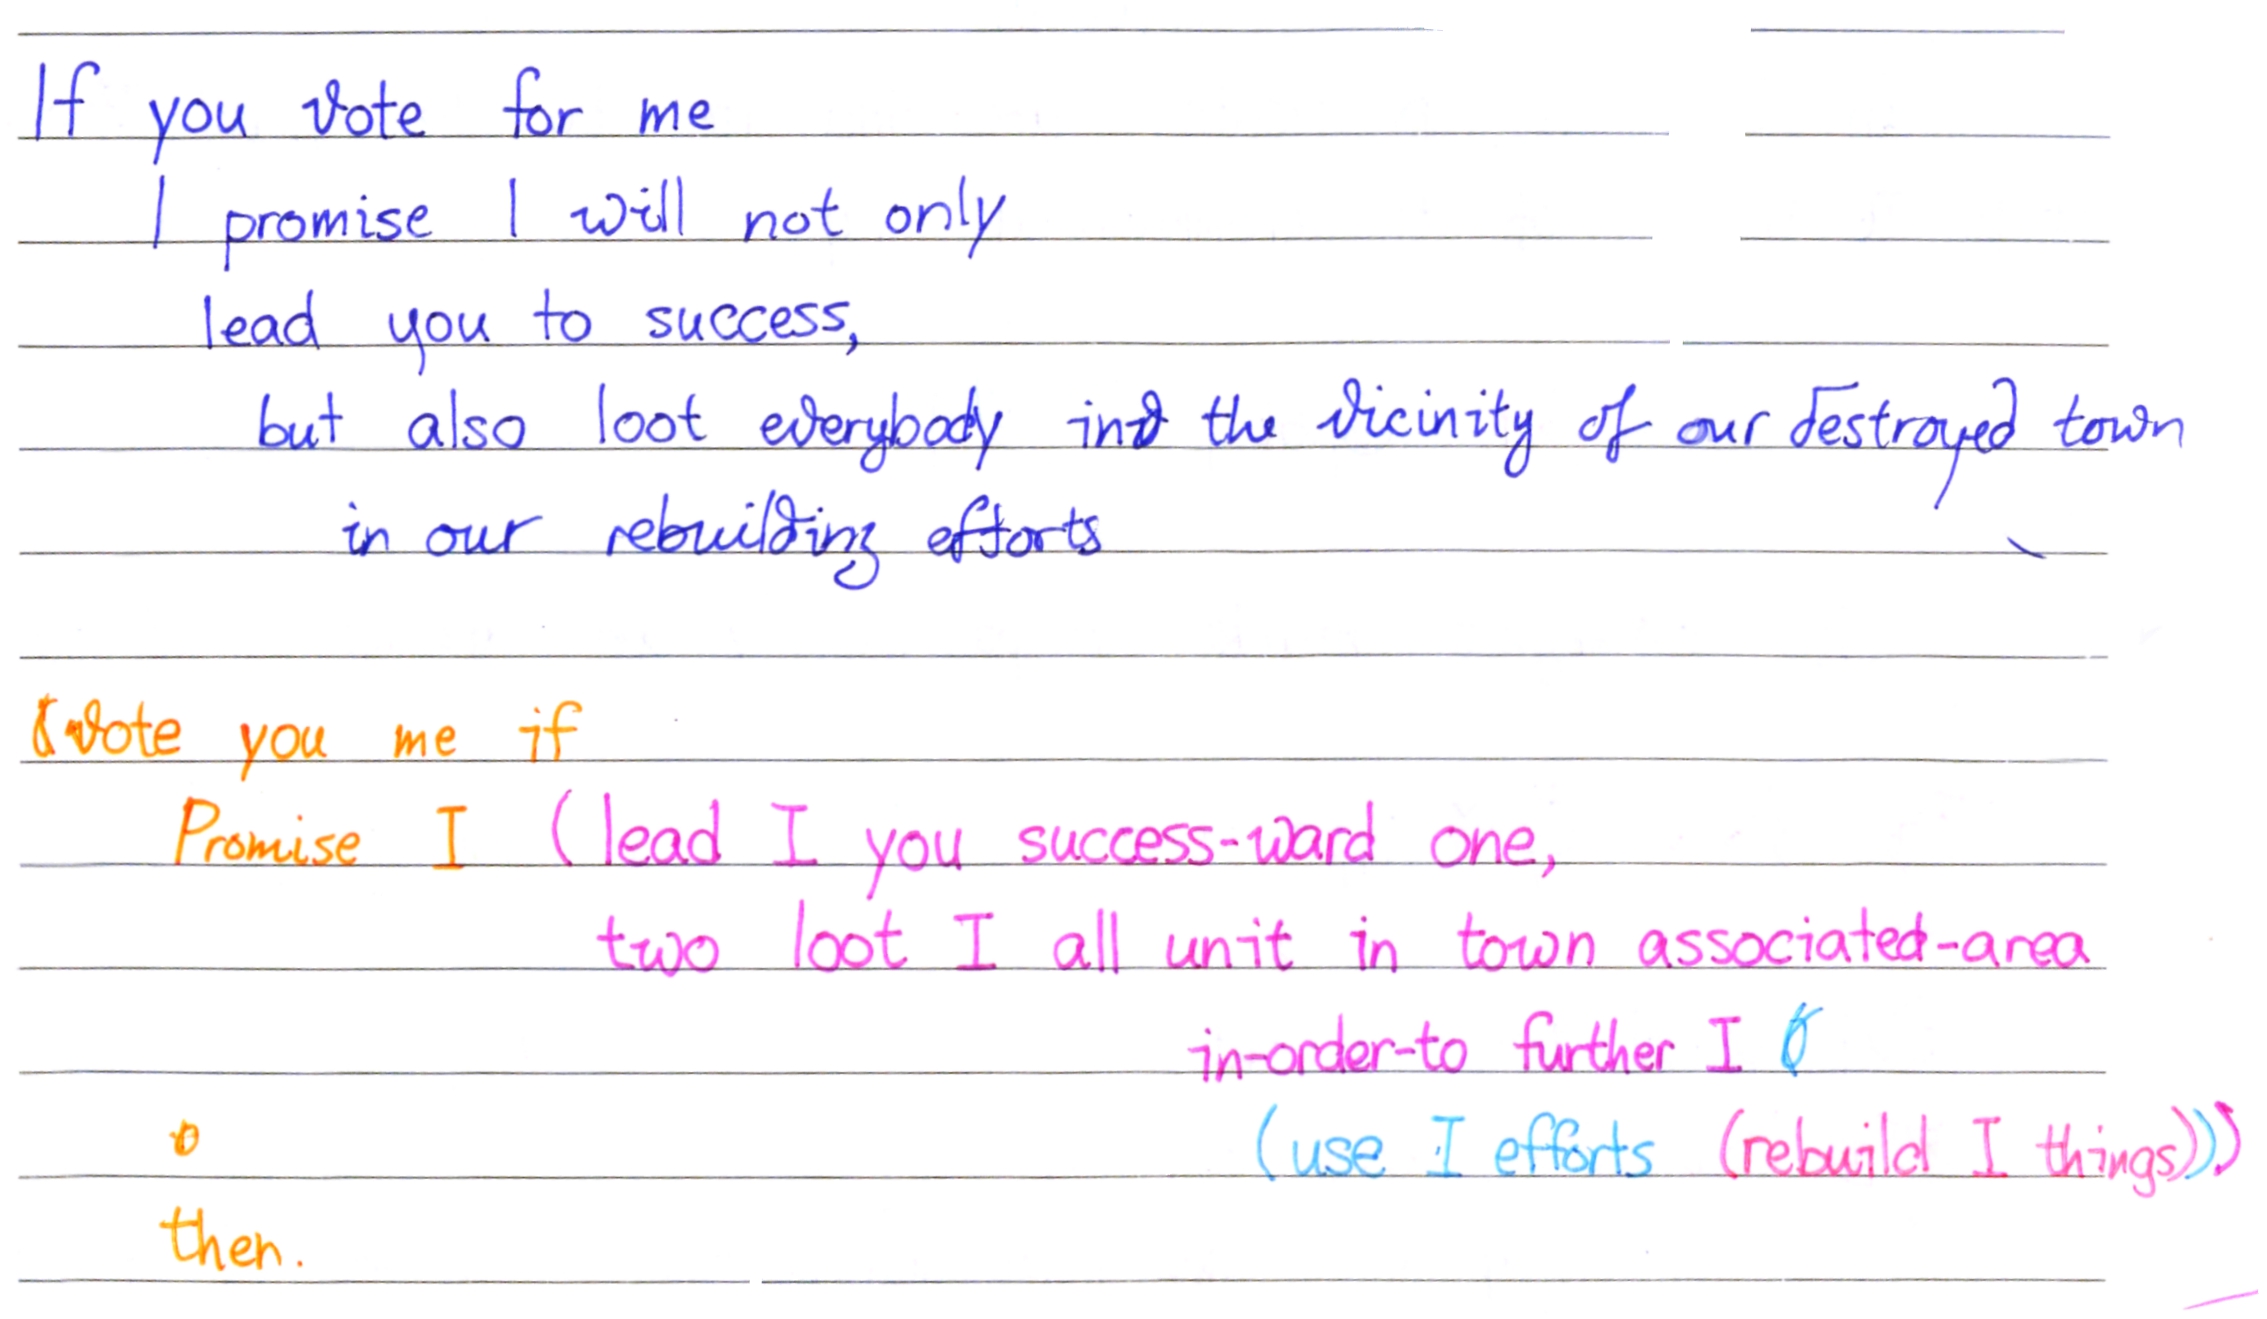 If you vote for me
I promise I will not only
lead you to success,
but also loot everybody in the vicinity of our destroyed town
in our rebuilding efforts
vote you me if
Promise I (lead I you success-ward one,
two loot I all unit in town associated-area
in-order-to further I
(use I efforts (rebuild I things)))
then.